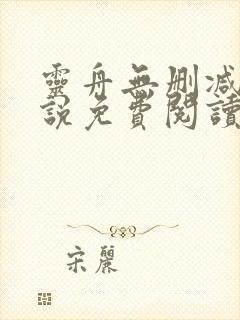 靈舟無刪減
說免費閱讀
宋麗